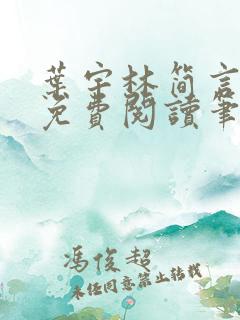 葉宇林簡言
免費閱讀筆
馮俊超
未经同意禁止转载